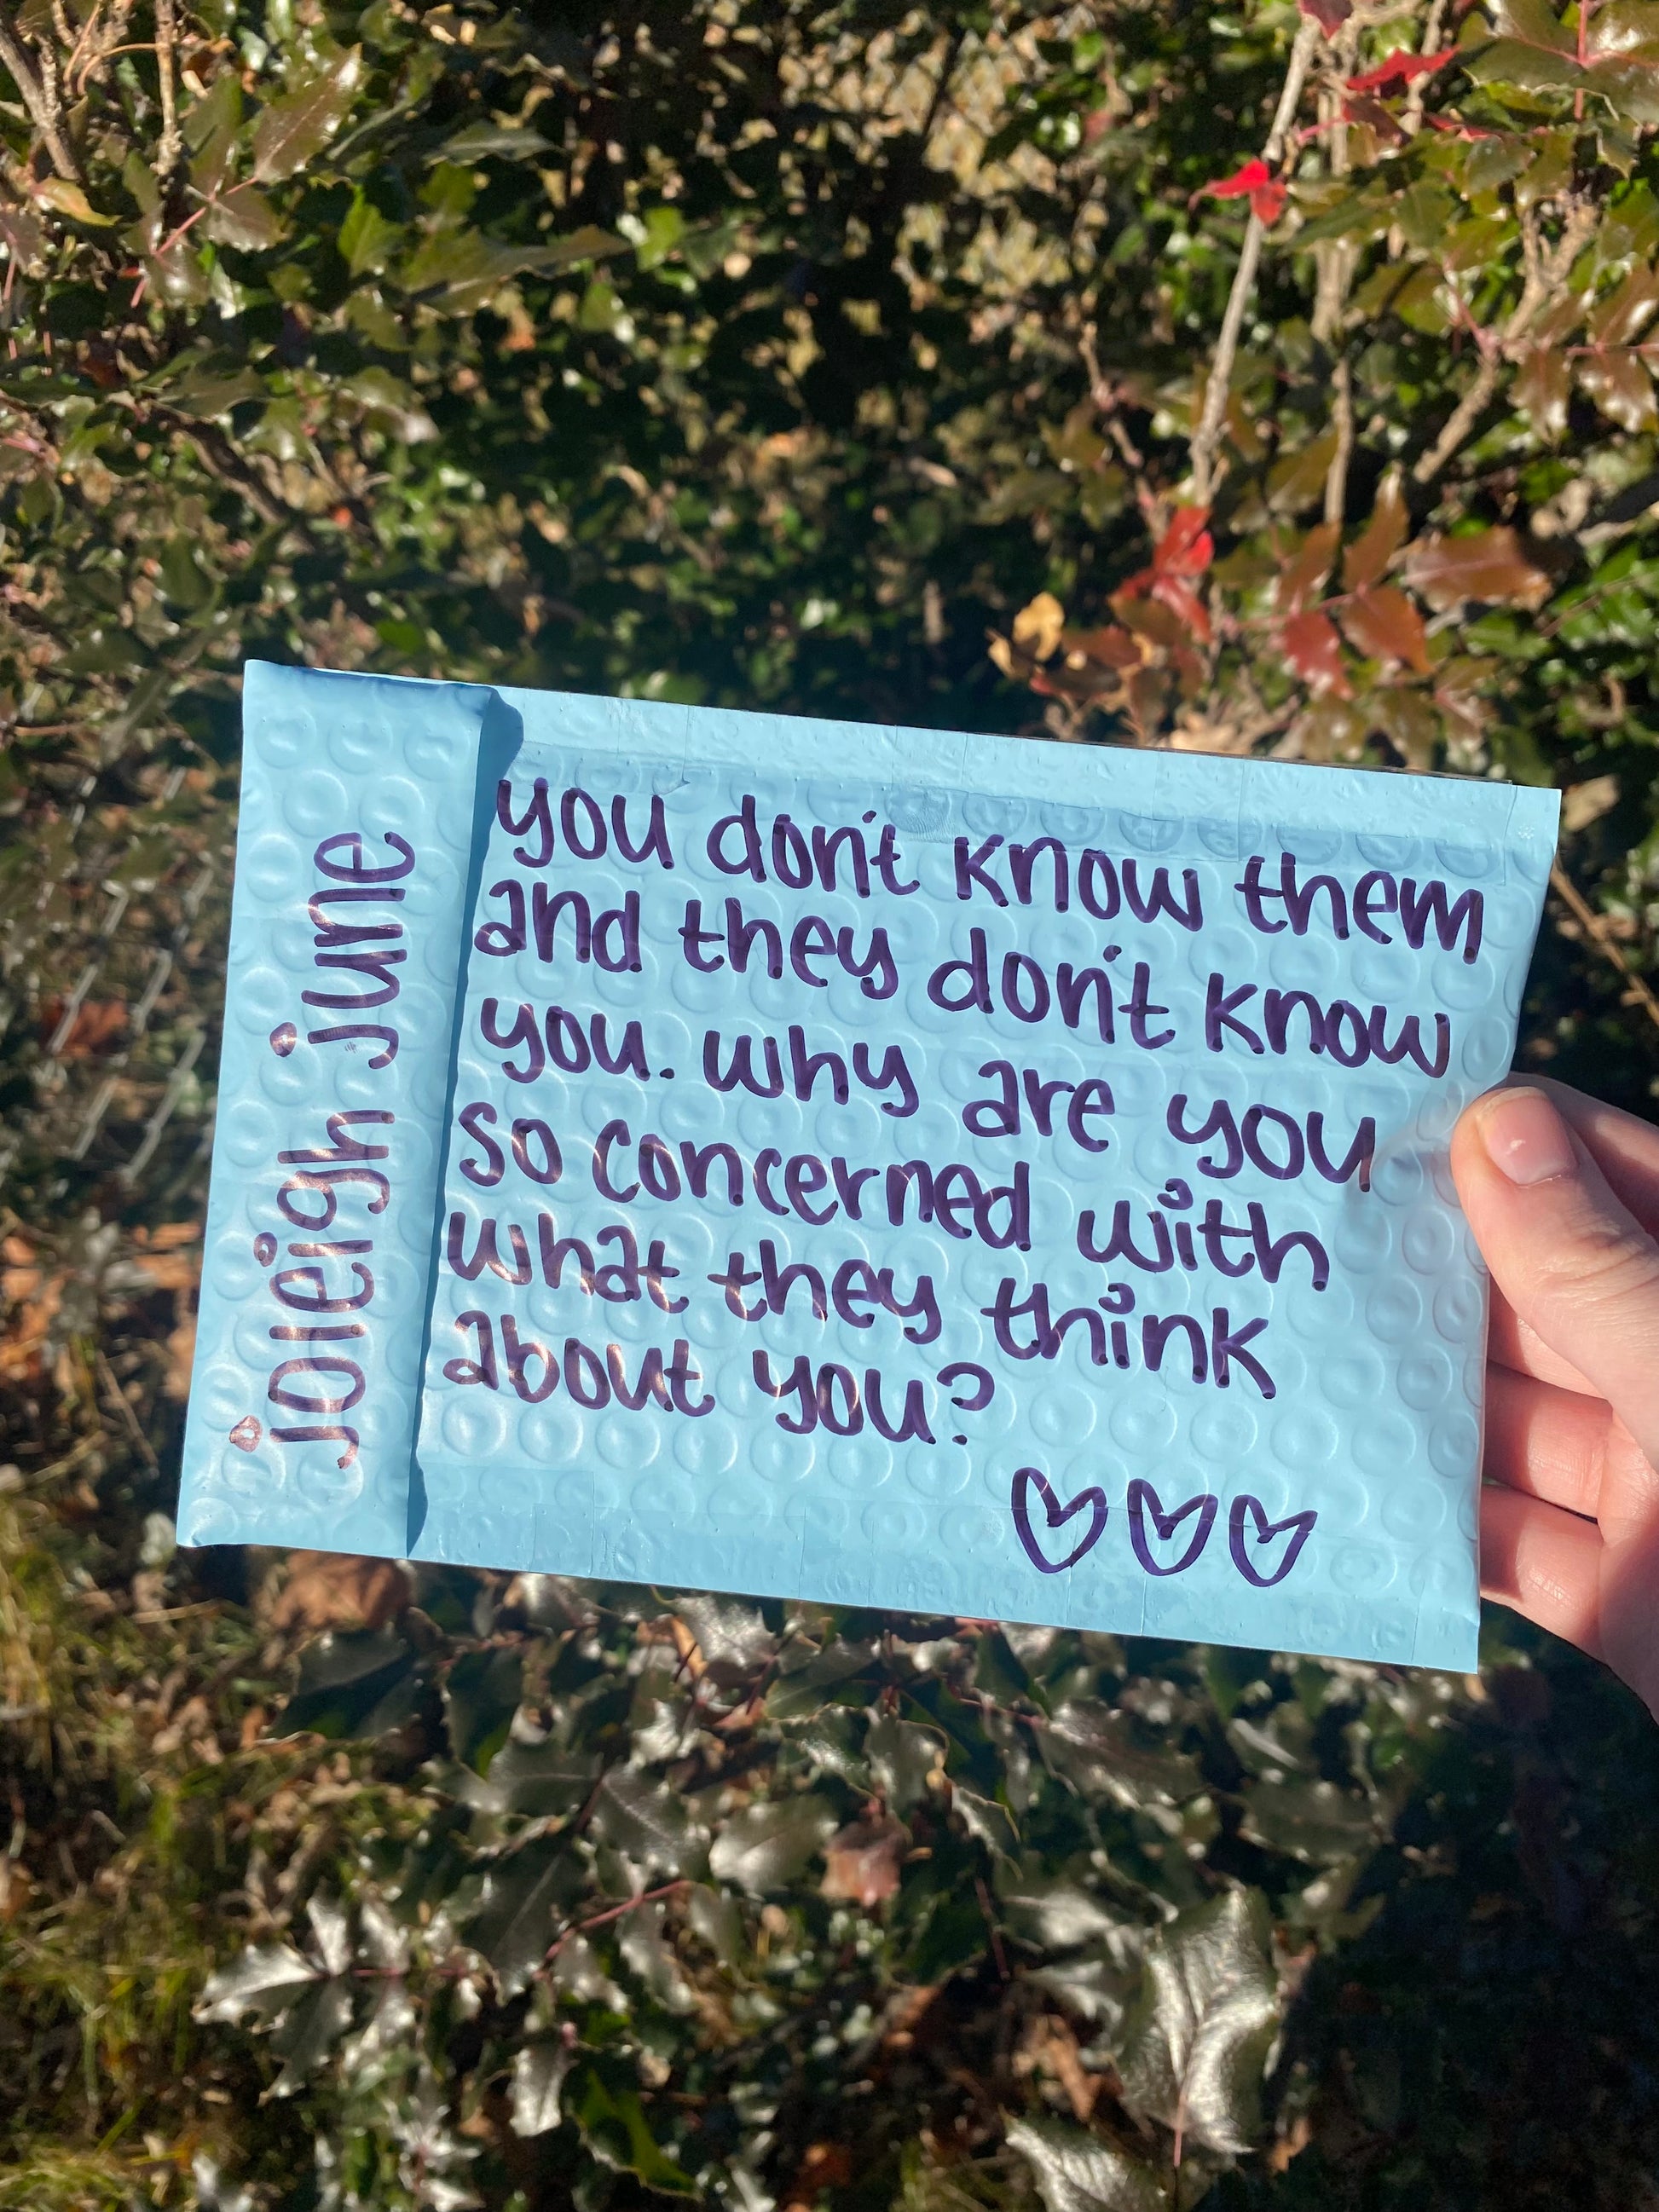 joleigh june
you don't know them
and they don't know
you. why are you
so concerned with
what they think
about you?